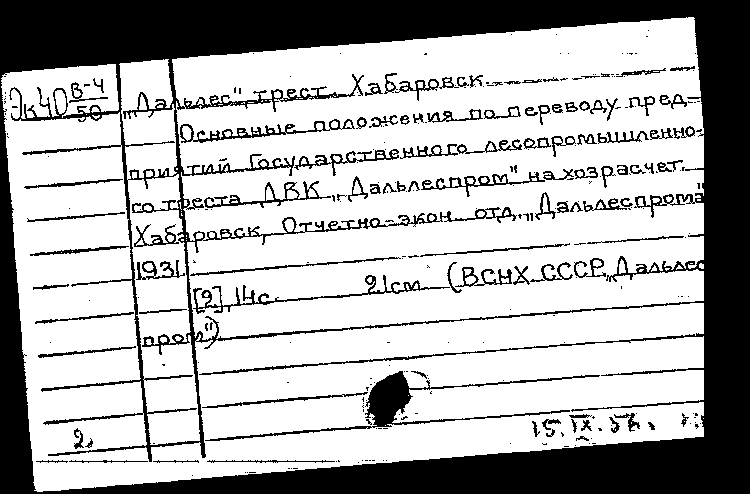 Эк40 В-4/50
"Дальлес", трест. Хабаровск.
Основные положения по переводу пред-
приятий Государственного лесопромышленно-
го треста ДВК "Дальлеспром" на хозрасчет.
Хабаровск, Отчетно-экон. отд. "Дальлеспрома"
1931.
[2], 14с. 21см. (ВСНХ СССР "Дальлес
пром")
2.
15.IX.57г.